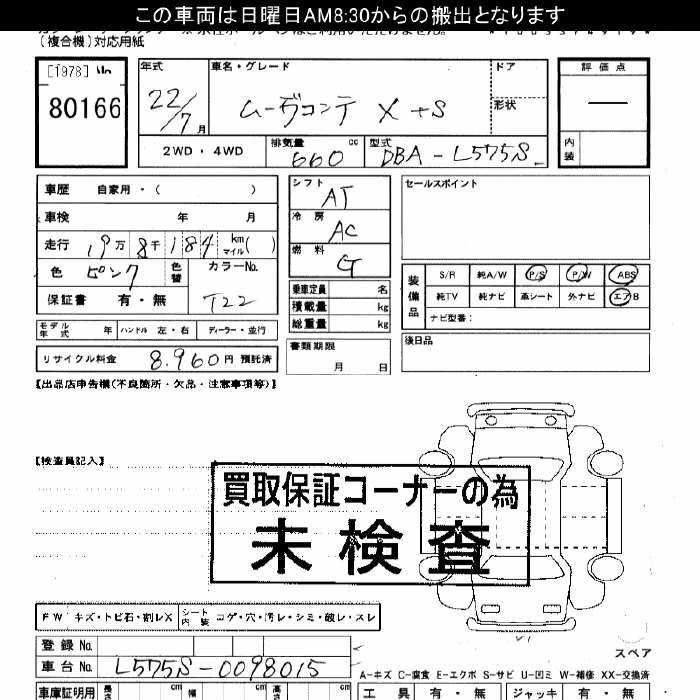 この車両は日曜日AM8:30からの搬出となります
(複合機)対応用紙
[1978]
80166
年式
22/7月
車名・グレード
ムーヴコンテ X+S
ドア
形状
評価点
—
内装
2WD・4WD
排気量
660 cc
型式
DBA-L575S
車歴 自家用・( )
車検 年 月
走行 19万8千184 km マイル( )
色 ピンク
色替
カラーNo.
T22
保証書 有・無
モデル年式 年
ハンドル 左・右
ディーラー・並行
リサイクル料金 8.960円 預託済
シフト AT
冷房 AC
燃料 G
乗車定員 名
積載量 kg
総重量 kg
書類期限
月 日
セールスポイント
装備品
S/R 純A/W P/S P/W ABS
純TV 純ナビ 革シート 外ナビ エアB
ナビ型番:
後日品
【出品店申告欄(不良箇所・欠品・注意事項等)】
【検査員記入】
買取保証コーナーの為
未検査
FW キズ・トビ石・割レX
シート内装 コゲ・穴・汚レ・シミ・破レ・スレ
登録No.
車台No. L575S-0098015
スペア
A-キズ C-腐食 E-エクボ S-サビ U-凹ミ W-補修 XX-交換済
車庫証明用
長さ cm 幅 cm 高さ cm
工具 有・無 ジャッキ 有・無